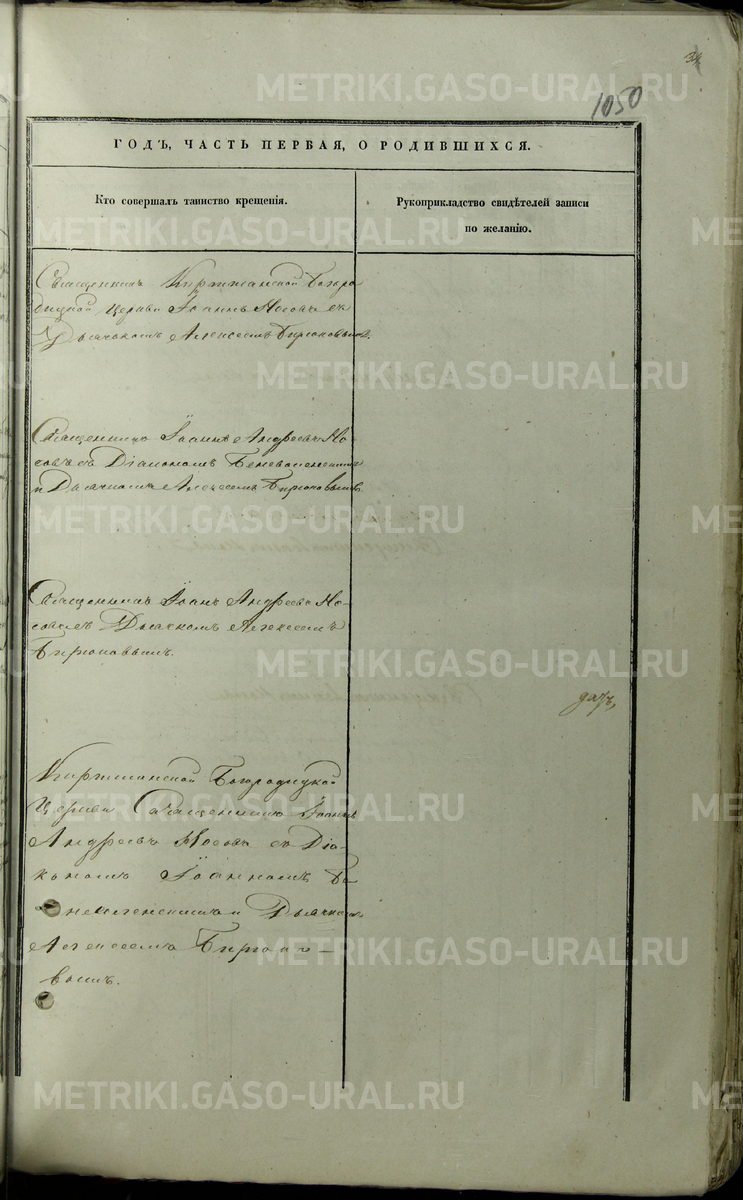 1050
ГОДЪ, ЧАСТЬ ПЕРВАЯ, О РОДИВШИХСЯ.
Кто совершалъ таинство крещенія.
Рукоприкладство свидѣтелей записи
по желанію.
Священникъ Киргишанской Богоро
дицкой церкви Іоаннъ Носовъ съ
Дьячкомъ Алексеемъ
Священникъ Іоаннъ Андреевъ Но
совъ съ Діакономъ
и Дьячкомъ Алексеемъ
Священникъ Іоанъ Андреевъ Но
совъ съ Дьячкомъ Алексеемъ
Киргишанской Богородицкой
Церкви Священникъ Іоаннъ
Андреевъ Носовъ съ Діа-
кономъ Іоанномъ
и Дьячкомъ
Алексеемъ
METRIKI.GASO-URAL.RU